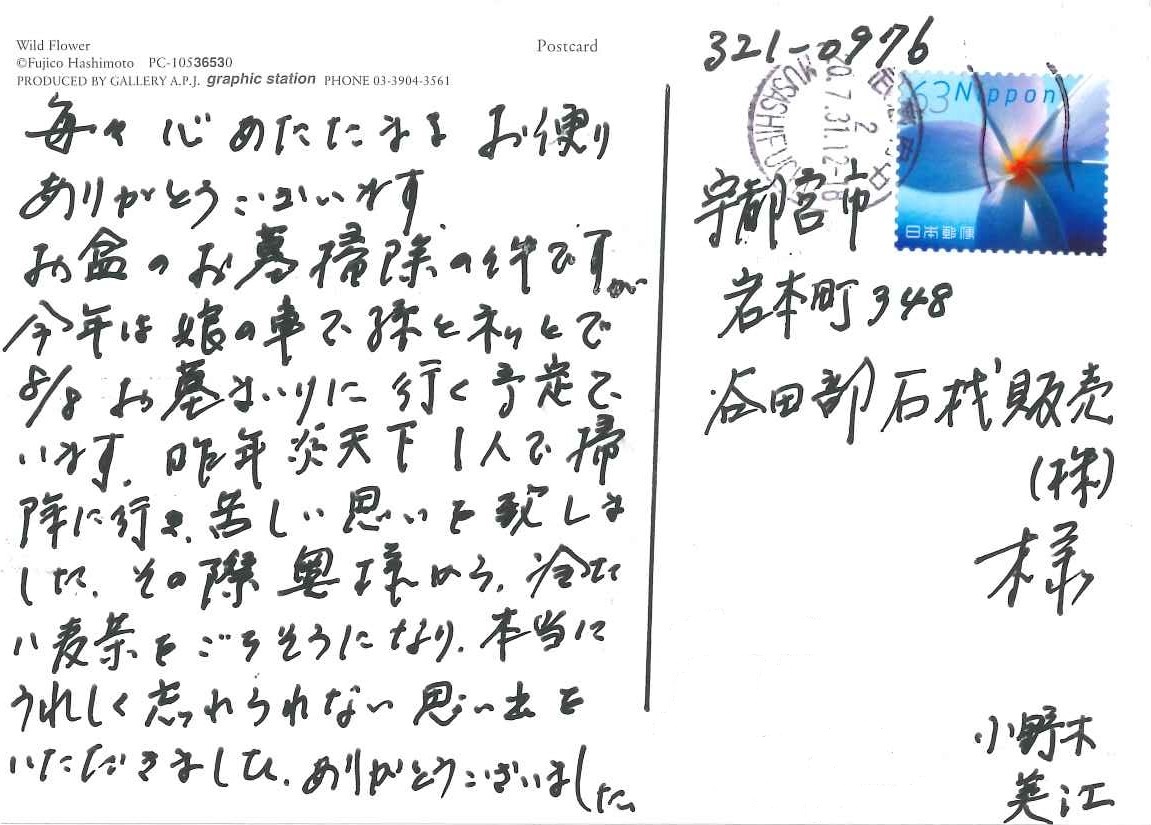 Wild Flower
©Fujico Hashimoto PC-10536530
PRODUCED BY GALLERY A.P.J. graphic station PHONE 03-3904-3561
Postcard
毎々心あたたまるお便り
ありがとうございます
お盆のお墓掃除の件ですが
今年は娘の車で孫とネットで
8/8お墓まいりに行く予定で
います。昨年炎天下1人で掃
除に行き、苦しい思いを致しま
した。その際奥様から、冷た
い麦茶をごちそうになり、本当に
うれしく忘れられない思い出を
いただきました。ありがとうございました
321-0976
宇都宮市
岩本町348
谷田部石材販売
(株)
様
小野木
美江
63 Nippon
日本郵便
2
20.7.31.12-18